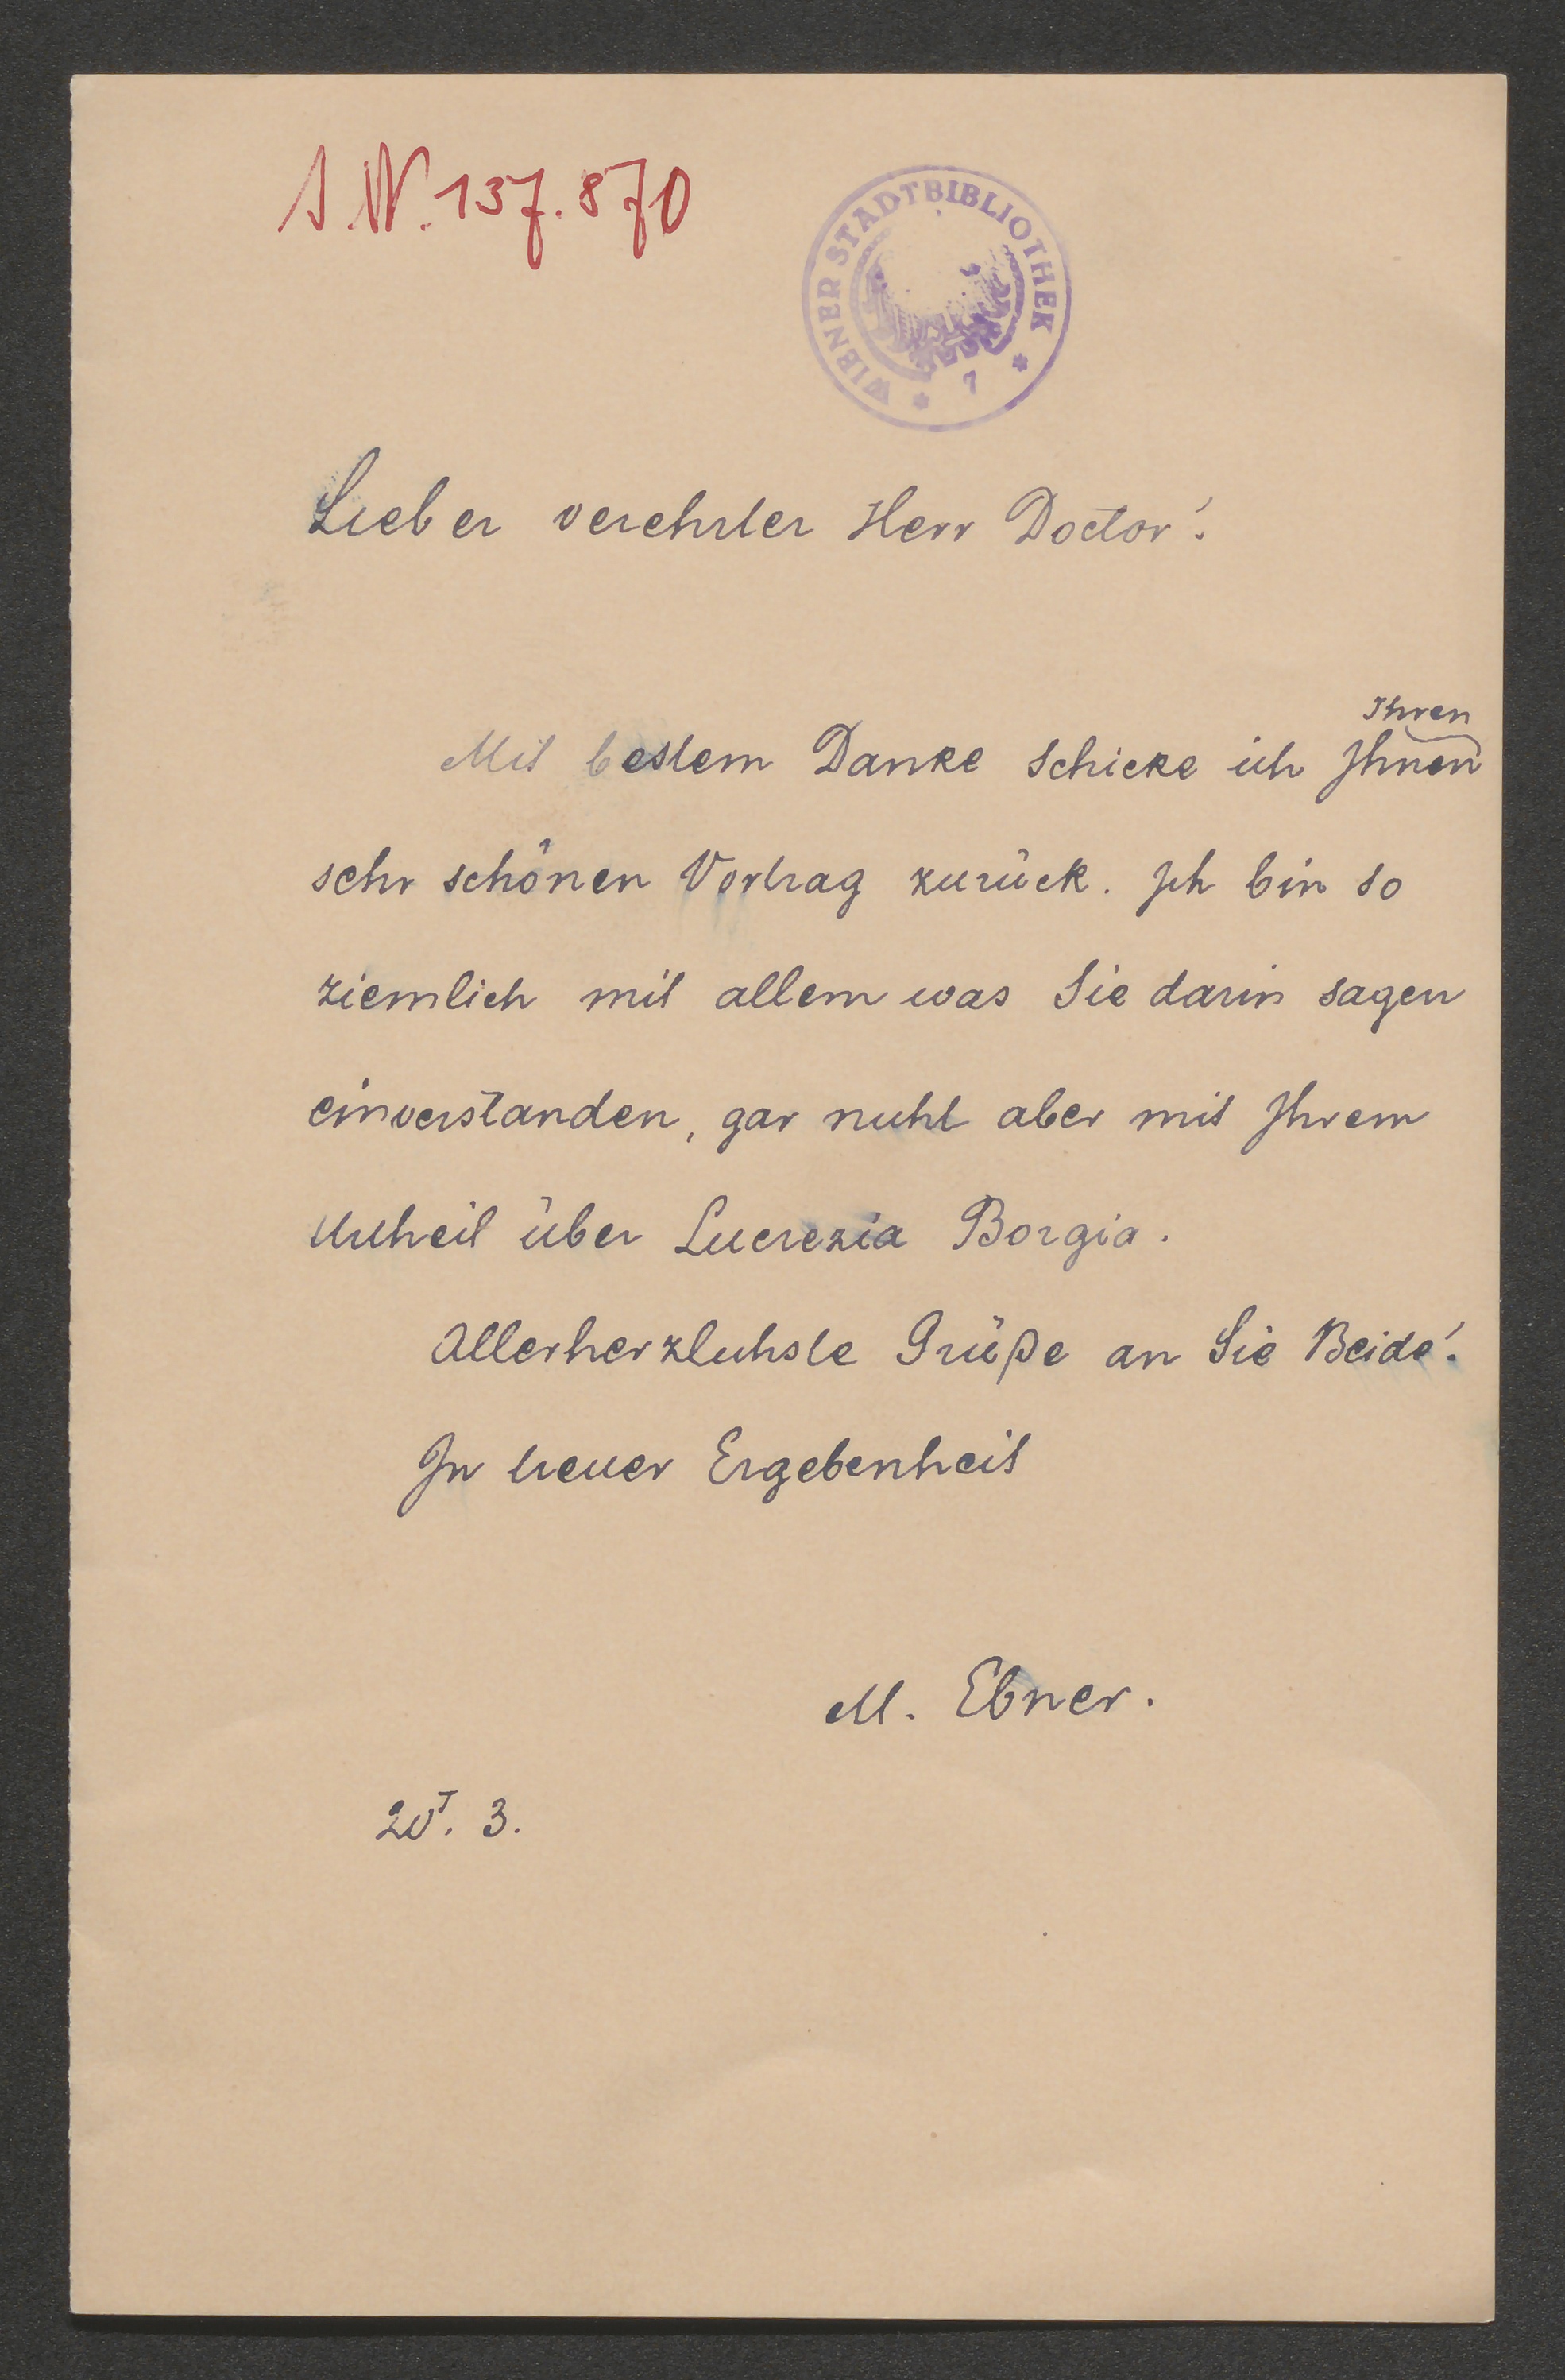 I.N. 137.870
WIENER STADTBIBLIOTHEK
* 7 *
Lieber verehrter Herr Doctor!
Ihren
Mit bestem Danke schicke ich Ihnen
sehr schönen Vortrag zurück. Ich bin so
ziemlich mit allem was Sie darin sagen
einverstanden, gar nicht aber mit Ihrem
Urtheil über Lucrezia Borgia.
Allerherzlichste Grüße an Sie Beide!
In treuer Ergebenheit
M. Ebner.
3.